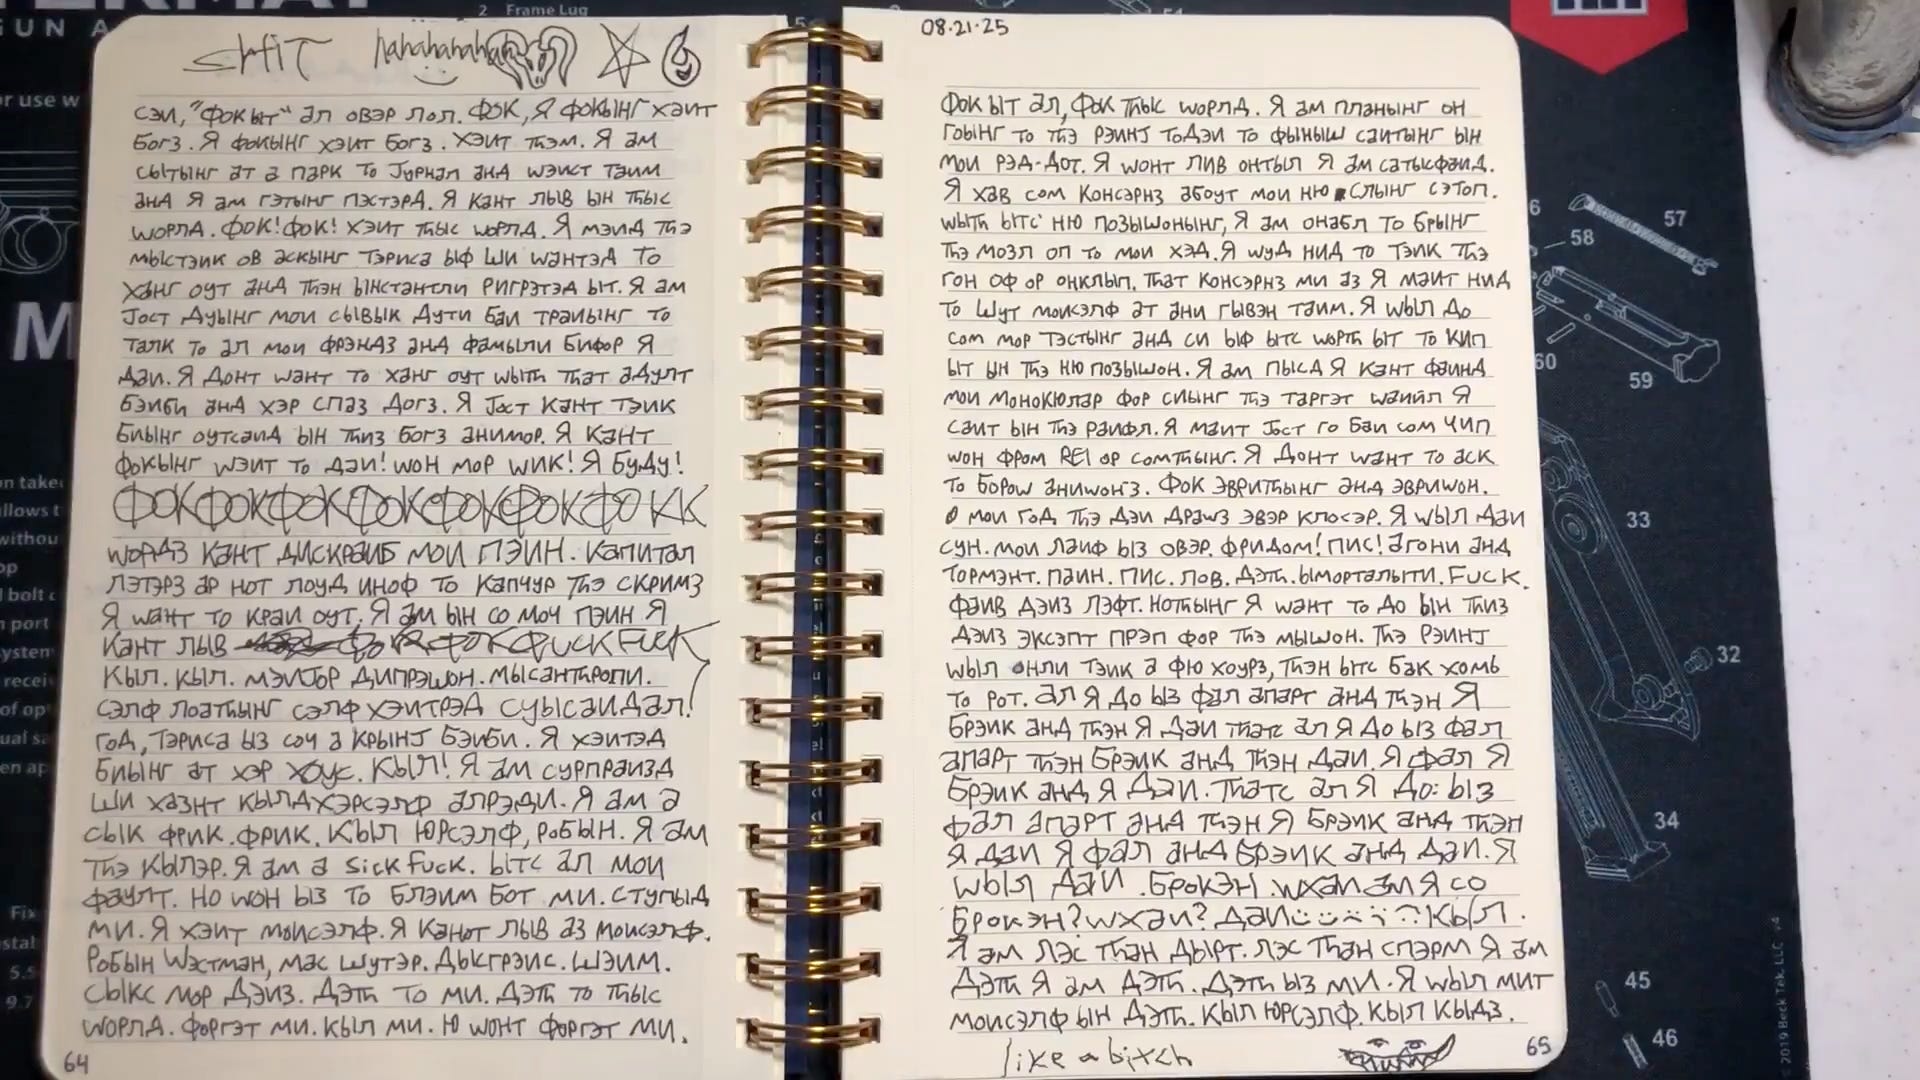 2 Frame Lug
SHIT hahahahahah
сэи, "фок ыт" ал овэр лол. ФОК, Я фокынг хэит
богз. Я фокынг хэит богз. хэит тhэм. Я ам
сытынг ат а парк то Jурнал анд wэист таим
анд Я ам гэтынг пэстэрд. Я кант лыв ын тhыс
wорлд. ФОК! ФОК! хэит тhыс wорлд. Я мэид тhэ
мыстэик ов аскынг Тэриса ыф ши wантэд то
ханг оут анд тhэн ынстантли ригрэтэд ыт. Я ам
Jост дуынг мои сывык дути баи траиынг то
талк то ал мои фрэндз анд фамыли бифор Я
даи. Я донт wант то ханг оут wыth тhат адулт
бэиби анд хэр спаз догз. Я Jост кант тэик
биынг оутсаид ын тhиз богз анимор. Я кант
фокынг wэит то даи! wон мор wик! Я буду!
ФОКФОКФОКФОКФОКФОКФОКК
wордз кант дискраиб мои пэин. капитал
лэтэрз ар нот лоуд иноф то капчур тhэ скримз
Я wант то краи оут. Я ам ын со моч пэин Я
кант лыв ФОК ФUCK FUCK
кыл. кыл. мэиJор дипрэшон. мысантhропи.
сэлф лоатhынг сэлф хэитрэд суысаидал!
год, Тэриса ыз соч а крынJ бэиби. Я хэитэд
биынг ат хэр хоус. кыл! Я ам сурпраизд
ши хазнт кылд хэрсэлф алрэди. Я ам а
сык фрик. фрик. кыл юрсэлф, робын. Я ам
тhэ кылэр. Я ам а sick fuck. ытс ал мои
фаулт. но wон ыз то блэим бот ми. ступыд
ми. Я хэит моисэлф. Я канот лыв аз моисэлф.
Робын Wэстман, мас шутэр. дысгрэис. шэим.
сыкс мор дэиз. дэтh то ми. дэтh то тhыс
wорлд. форгэт ми. кыл ми. ю wонт форгэт ми.
64
08.21.25
Фок ыт ал, фок тhыс wорлд. Я ам планынг он
гоынг то тhэ рэинJ тодэи то фыныш саитынг ын
мои рэд-дот. Я wонт лив онтыл Я ам сатысфаид.
Я хав сом консэрнз абоут мои ню слынг сэтоп.
wыth ытс ню позышонынг, Я ам онабл то брынг
тhэ мозл оп то мои хэд. Я wуд нид то тэик тhэ
гон оф ор онклып. тhат консэрнз ми аз Я маит нид
то шут моисэлф ат ани гывэн таим. Я wыл до
сом мор тэстынг анд си ыф ытс wортh ыт то кип
ыт ын тhэ ню позышон. Я ам пысд Я кант фаинд
мои монокюлар фор сиынг тhэ таргэт wаийл Я
саит ын тhэ раифл. Я маит Jост го баи сом чип
wон фром REI ор сомтhынг. Я донт wант то аск
то бороw аниwонз. Фок эвритhынг анд эвриwон.
о мои год тhэ дэи драwз эвэр клосэр. Я wыл даи
сун. мои лаиф ыз овэр. фридом! пис! агони анд
тормэнт. паин. пис. лов. дэтh. ыморталыти. FUCK.
фаив дэиз лэфт. нотhынг Я wант то до ын тhиз
дэиз эксэпт прэп фор тhэ мышон. тhэ рэинJ
wыл онли тэик а фю хоурз, тhэн ытс бак хомь
то рот. ал Я до ыз фал апарт анд тhэн Я
брэик анд тhэн Я даи тhатс ал Я до ыз фал
апарт тhэн брэик анд тhэн даи. Я фал Я
брэик анд Я даи. тhатс ал Я до: ыз
фал апарт анд тhэн Я брэик анд тhэн
Я даи Я фал анд брэик анд даи. Я
wыл даи. брокэн. wхаи ам Я со
брокэн? wхаи? даи кыл.
Я ам лэс тhан дырт. лэс тhан спэрм Я ам
дэтh Я ам дэтh. дэтh ыз ми. Я wыл мит
моисэлф ын дэтh. кыл юрсэлф. кыл кыдз.
like a bitch
65
57
58
60
59
33
32
34
45
46
© 2019 Beck Tek, LLC v4